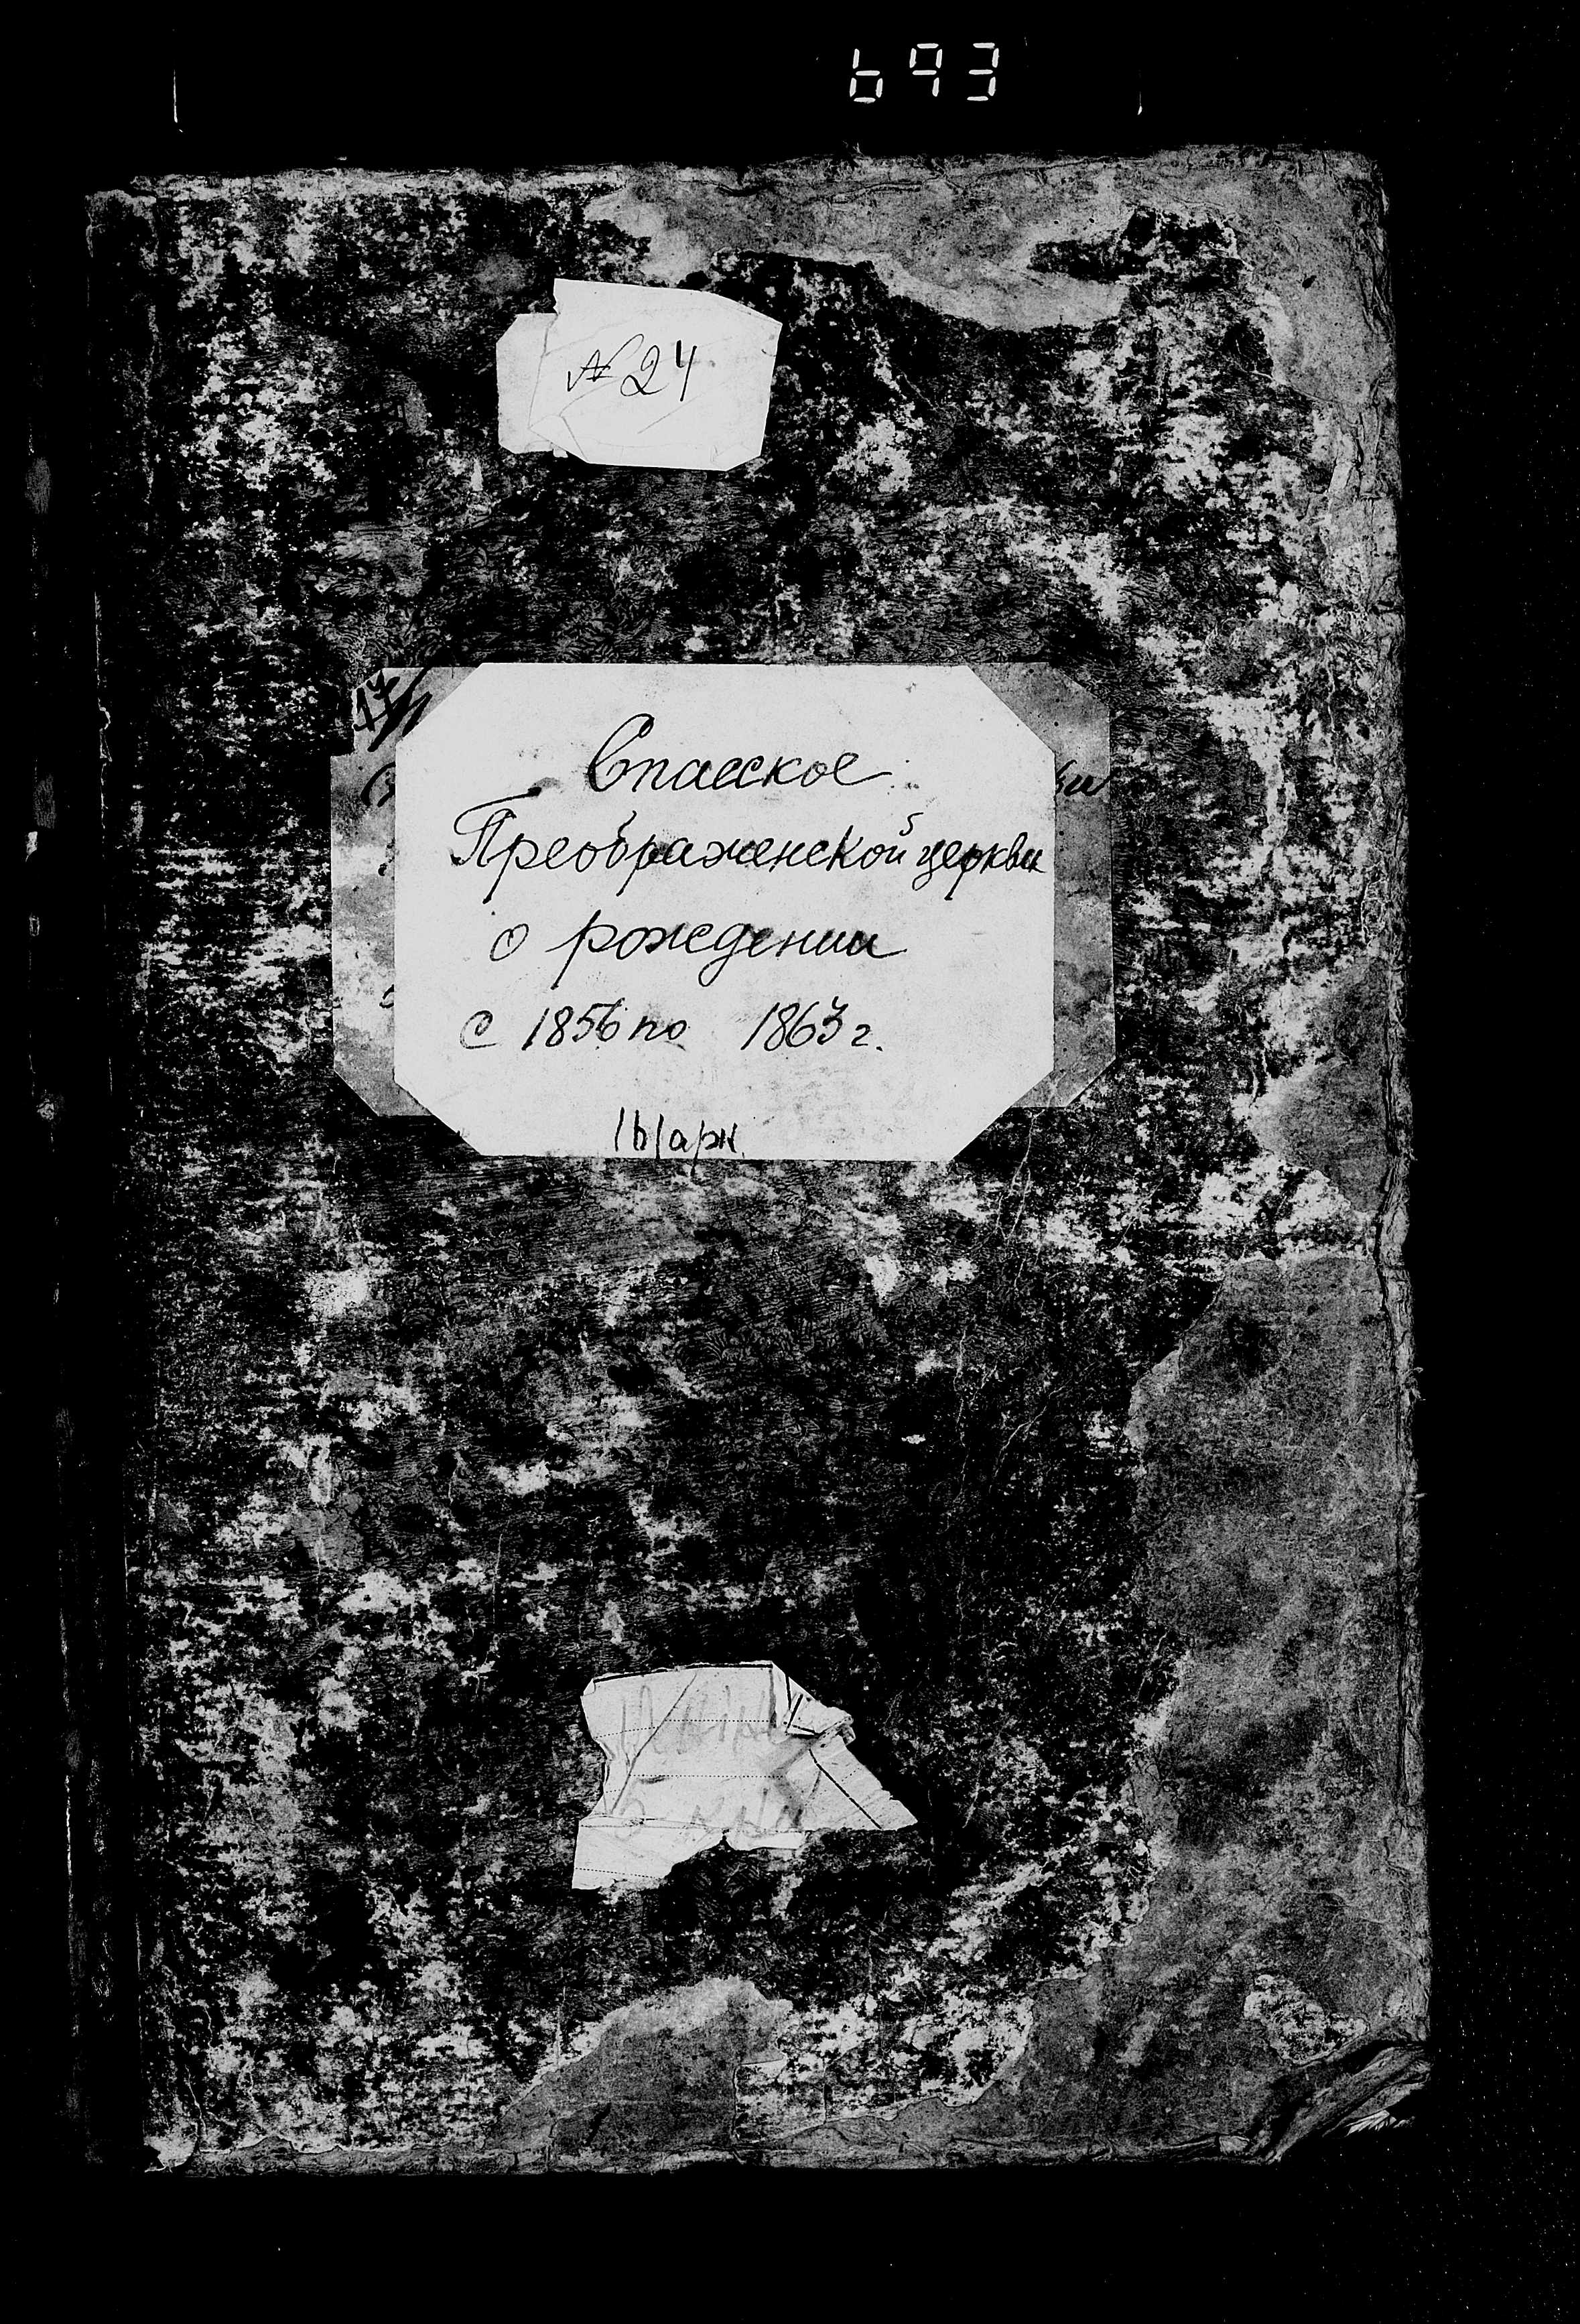 693
№ 24
17
Спасское
Преображенской церкви
о рождении
с 1856 по 1863 г.
161 арк.